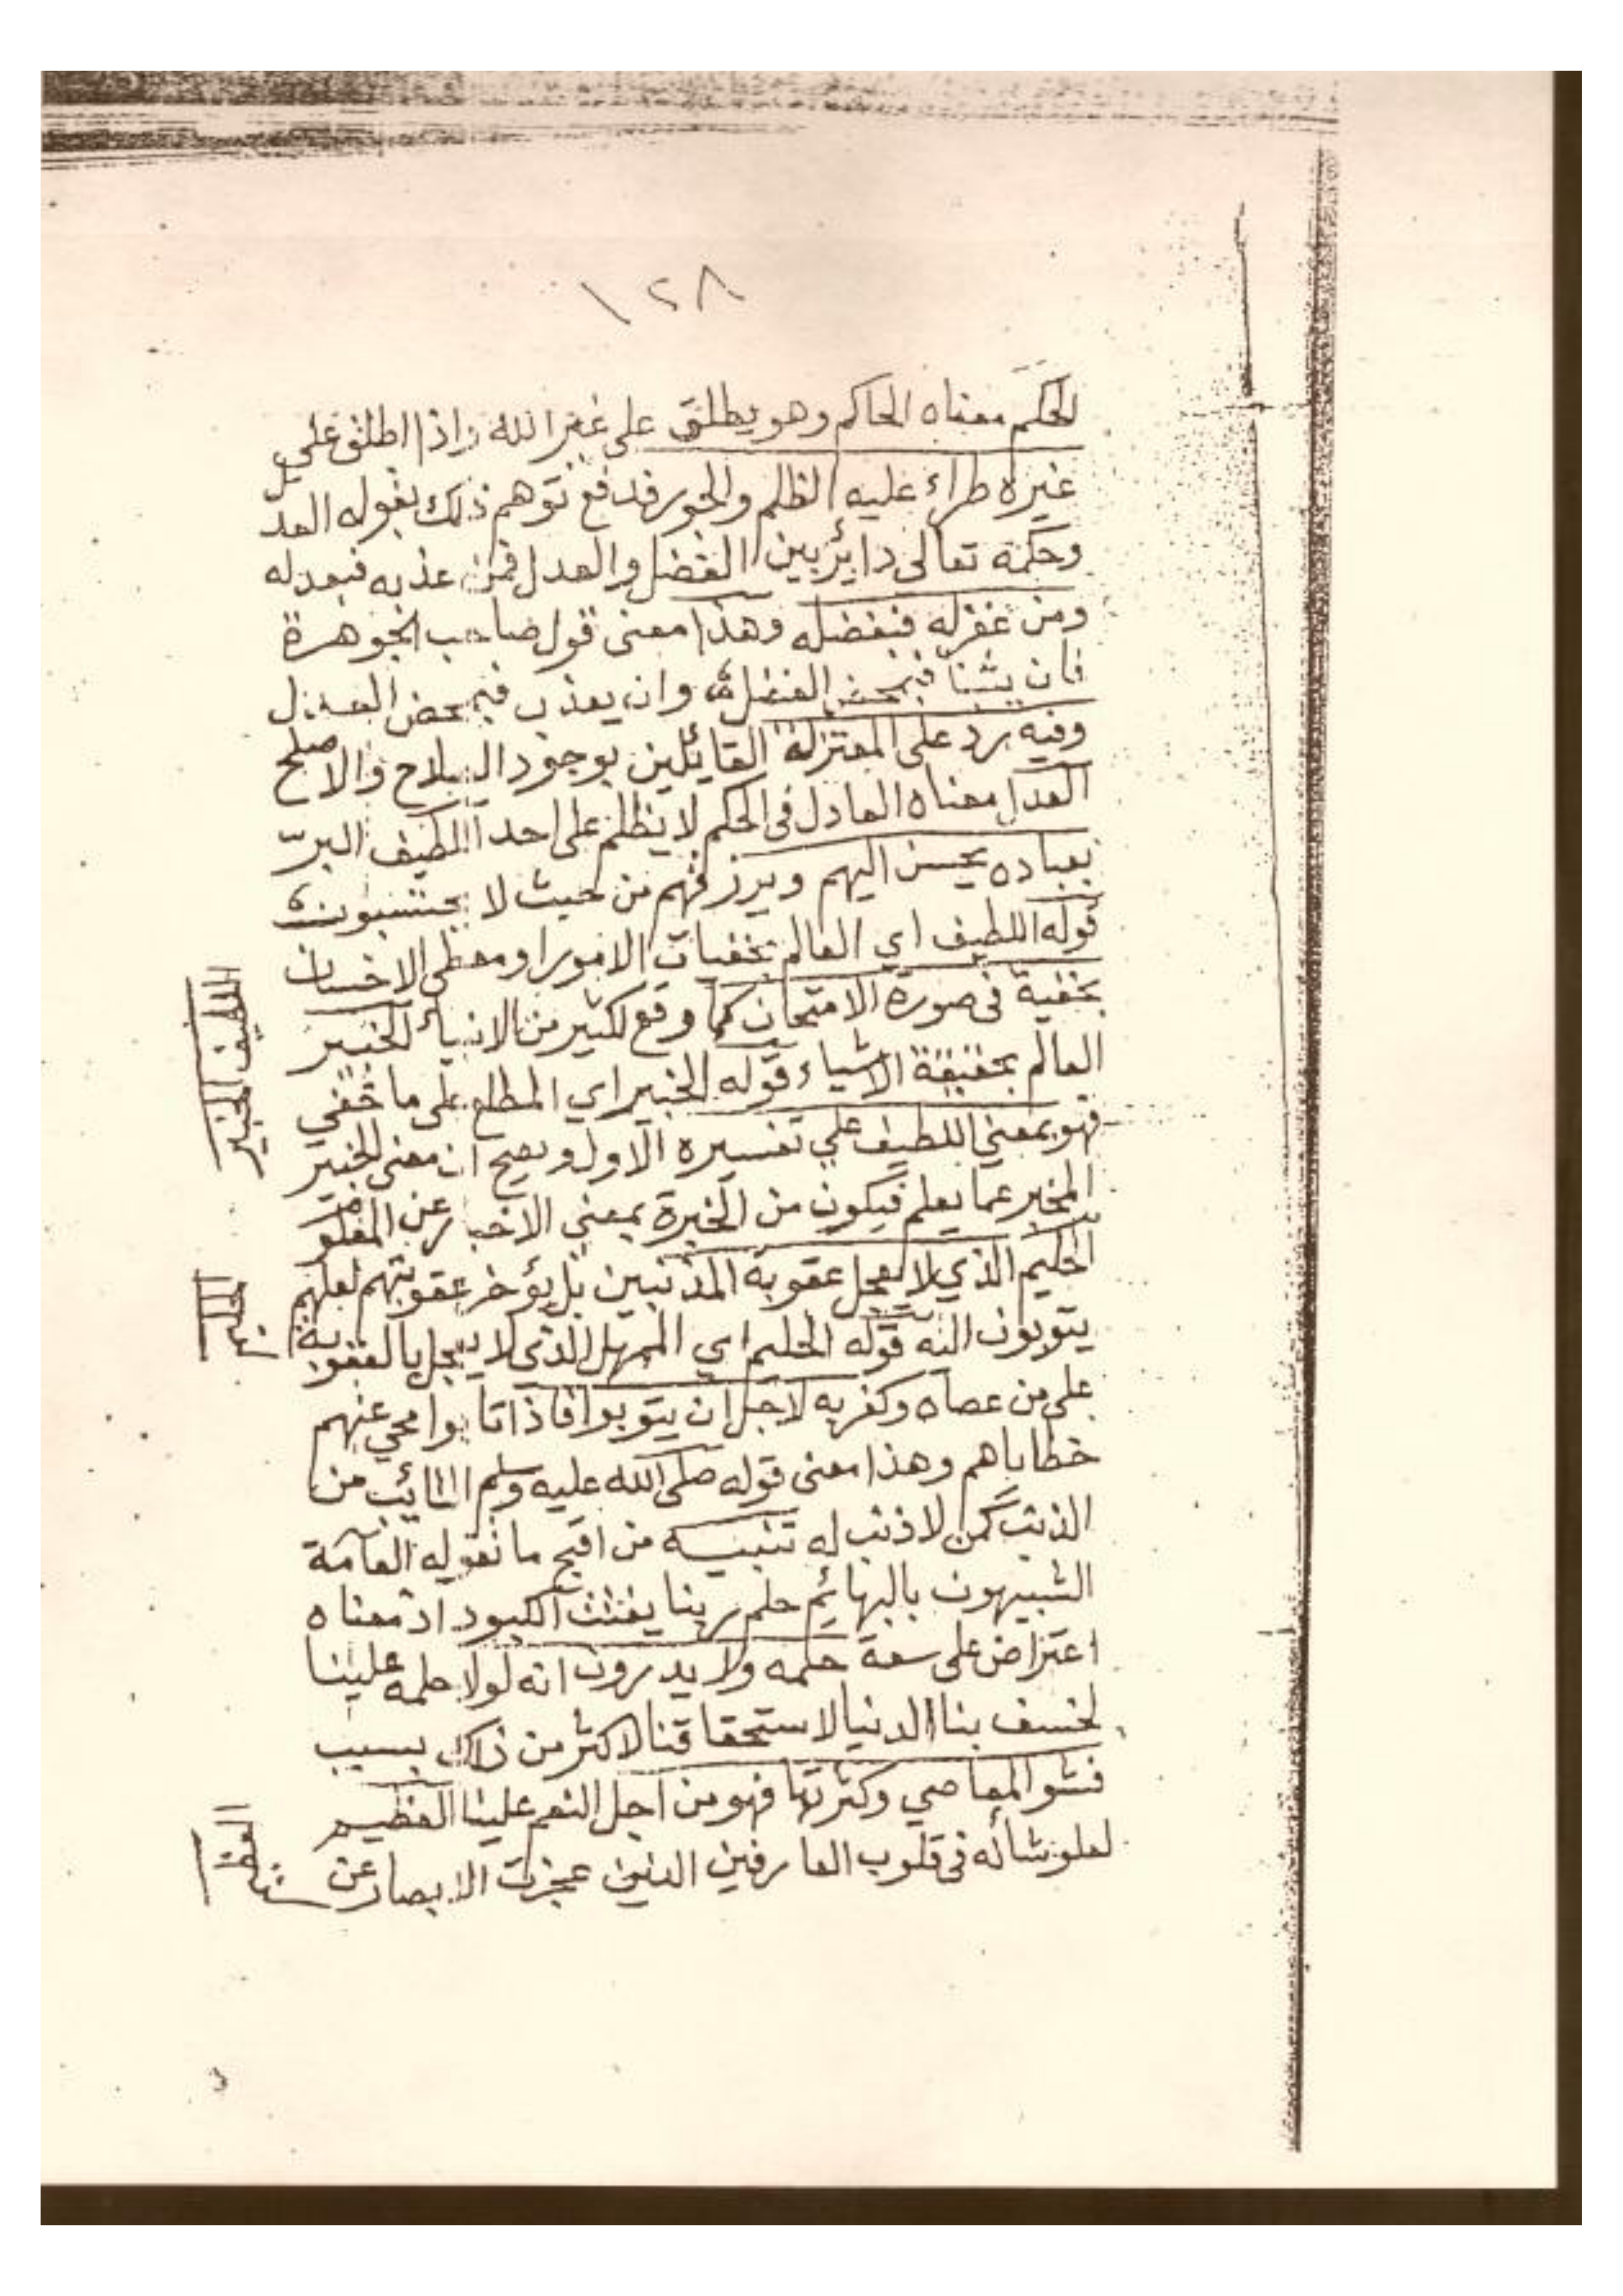 ١٢٨
الحَكَم معناه الحاكم وهو يطلق على غير الله واذا اطلق على
غيره طراء عليه الظلم والجور فدفع توهم ذلك بقوله العدل
وحكمه تعالى دائر بين الفضل والعدل فمن عذبه فبعدله
ومن غفر له فبفضله وهذا معنى قول صاحب الجوهرة
فان يثبنا فبمحض الفضل وان يعذب فبمحض العدل
وفيه رد على المعتزلة القائلين بوجود الصلاح والاصلح
العدل معناه العادل فى الحكم لا يظلم على احد اللطيف البرّ
بعباده يحسن اليهم ويرزقهم من حيث لا يحتسبون
قوله اللطيف اي العالم بخفيات الامور او معطي الاحسان
بخفية فى صورة الامتحان كما وقع لكثير من الانبياء الخبير
العالم بحقيقة الاشياء قوله الخبير اي المطلع على ما خفي
فهو بمعني اللطيف علي تفسيره الاول ويصح ان معنى الخبير
المخبر عما يعلم فيكون من الخبرة بمعني الاخبار عن المغلو
الحليم الذي لا يعجل عقوبة المذنبين بل يؤخر عقوبتهم لعلهم
يتوبون اليه قوله الحليم اي الممهل الذي لا يعجل بالعقوبة
على من عصاه وكفر به لاجل ان يتوبوا فاذا تابوا محي عنهم
خطاياهم وهذا معنى قوله صلى الله عليه وسلم التائب من
الذنب كمن لا ذنب له تنبيه من اقبح ما تقوله العامة
الشبيهون بالبهائم حلم ربنا يفتت الكبود اذ معناه
اعتراض على سعة حلمه ولا يدرون انه لولا حلمه علينا
لخسف بنا الدنيا لاستحقاقنا لاكثر من ذلك بسبب
فشو المعاصي وكثرتها فهو من اجل النعم علينا العظيم
لعلو شأنه فى قلوب العارفين الذين عجزت الابصار عن
اللطيف الخبير
الحليم
العظيم